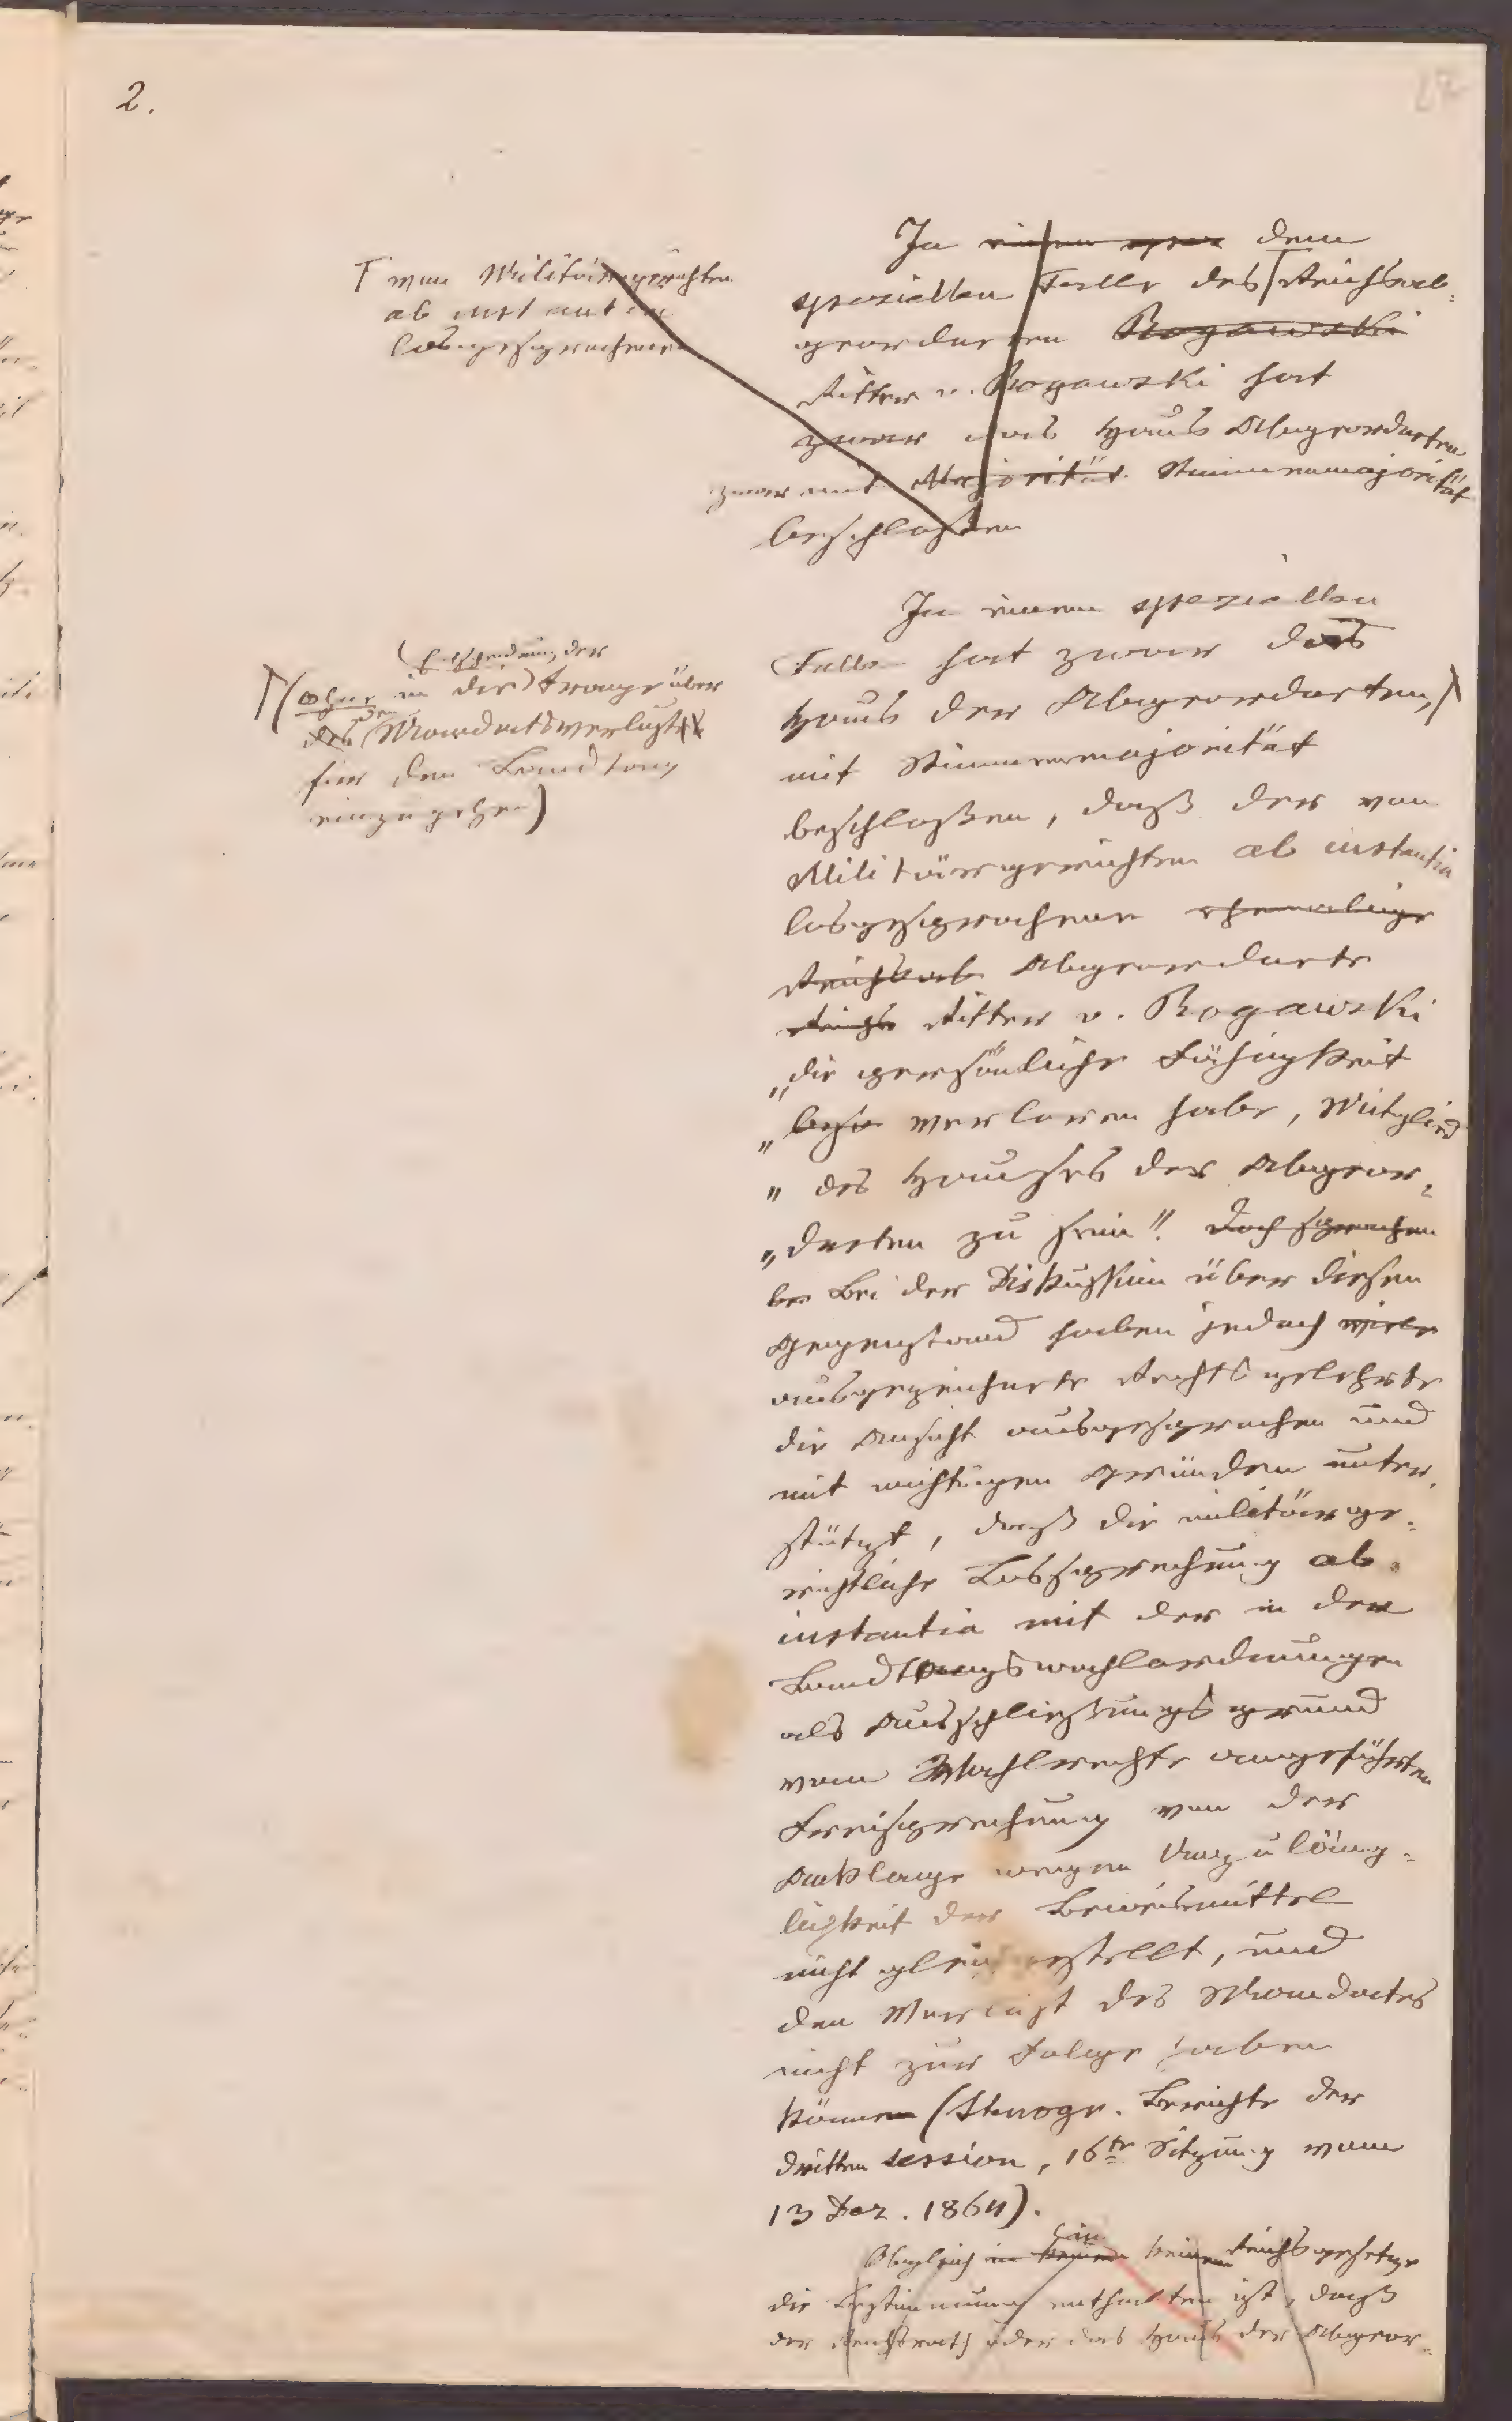 2.
In einem spez dem
speziellen Falle des Reichsab=
geordneten Rogawski
Ritter v. Rogawski hat
zwar das Haus Abgeordneten
zwar mit Majorität Stimmenmajorität
beschloßen
Γ vom Militärgerichten
ab instantia
losgesprochenen
In einem speziellen
Falle hat zwar das
Haus der Abgeordneten,
mit Stimmenmajorität
beschloßen, daß der von
Militärgerichten ab instantia
losgesprochene ehemalige
Reichsab Abgeordnete
Reichs Ritter v. Rogawski
„die persönliche Fähigkeit
„ verloren habe, Mitglied
„ des Hauses der Abgeor=
„dneten zu sein". Doch sprachen
be Bei der Diskußion über diesen
Gegenstand haben jedoch viele
ausgezeichnete Rechtsgelehrte
die Ansicht ausgesprochen und
mit wichtigen Gründen unter=
stützt, daß die militärge=
richtliche Lossprechung ab
instantia mit der in den
Landtagswahlordnungen
als Ausschließungsgrund
vom Wahlrechte angeführten
Freisprechung von der
Anklage wegen Unzuläng=
lichkeit der Beweismittel
nicht gleichgestellt, und
den Verlust des Mandates
nicht zur Folge haben
können (Stenogr. Berichte der
dritten Session, 16te Sitzung vom
13 Dez. 1864).
(Entscheidung der
Γ(ohne in die) Frage über
des den Mandatsverlust
für den Landtag
einzugehen)
in
Obgleich in keinem keinem Reichsgesetze
die Bestimmung enthalten ist, daß
der Reichsrath oder das Haus der Abgeor=